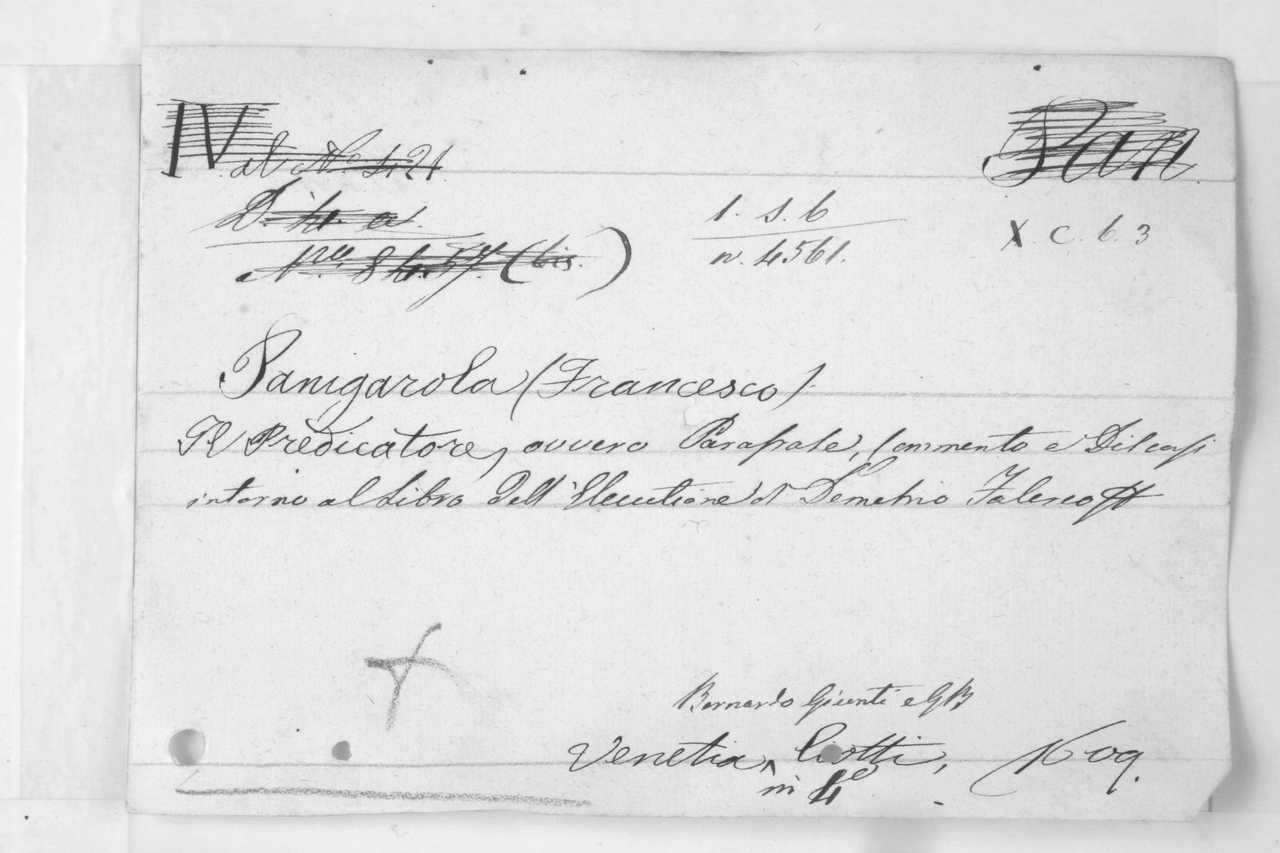 IV al No 421
Pan
D. 4. a.
1. S. b
X. C. b. 3
Nro. 84 (bis.)
n. 4561.
Panigarola (Francesco)
Il Predicatore, ovvero Parafrase, Commento e Discorsi
intorno al Libro dell'Elocutione di Demetrio Falereo
Bernardo Giunti e GB
Venetia, Ciotti, 1609.
in 4o